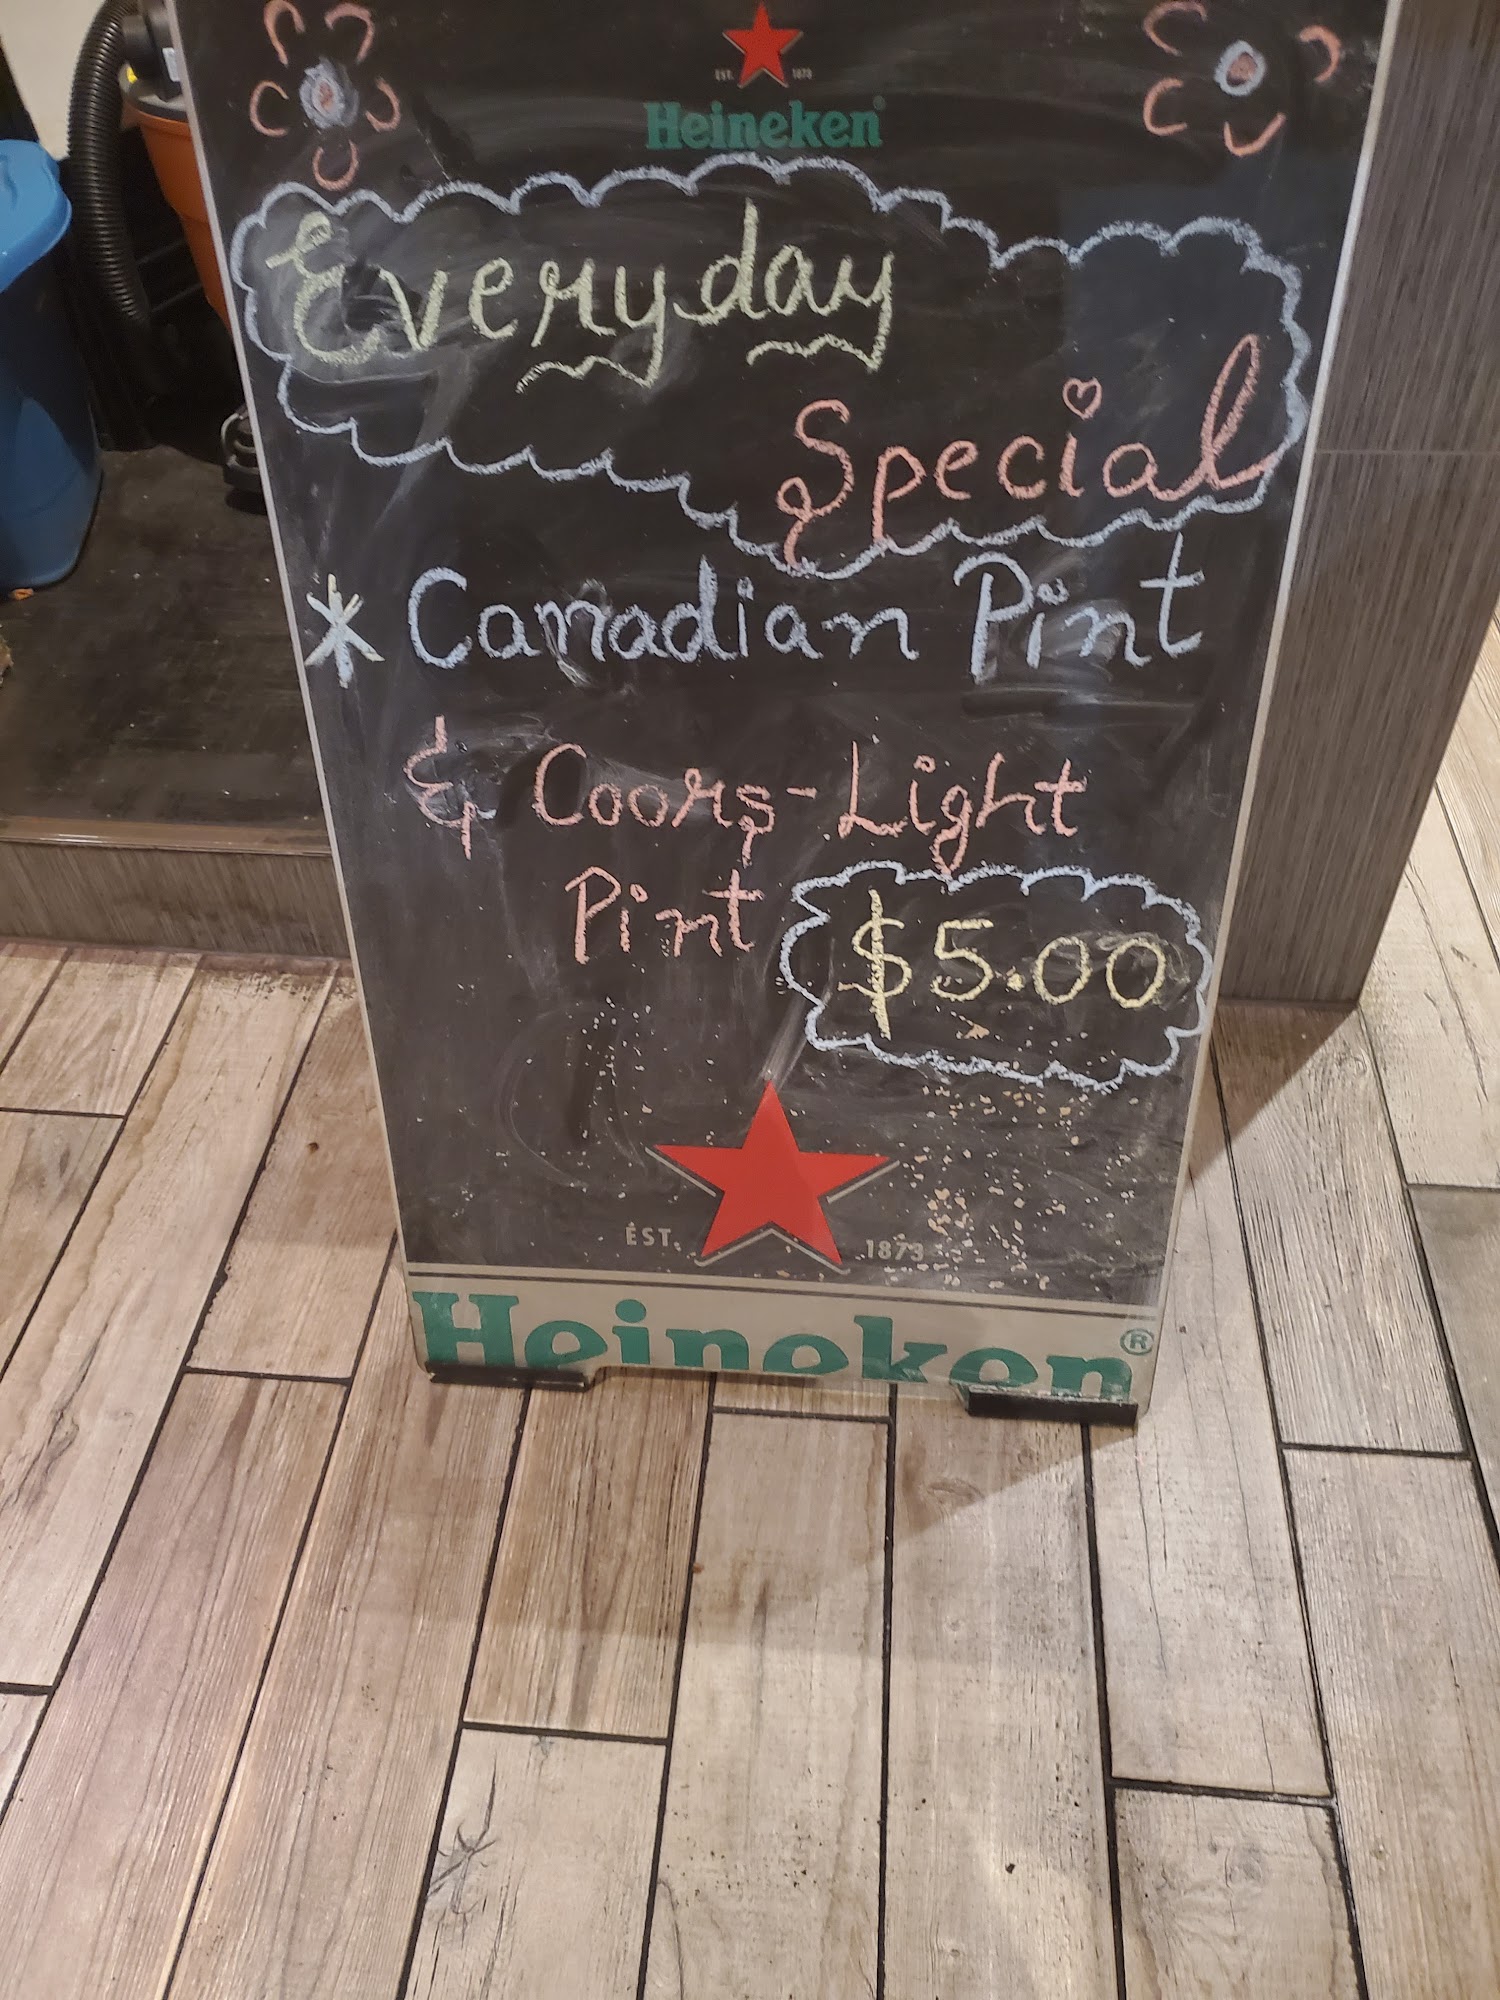 EST. 1873
Heineken®
Everyday
Special
* Canadian Pint
& Coors-Light
Pint $5.00
EST. 1873
Heineken®